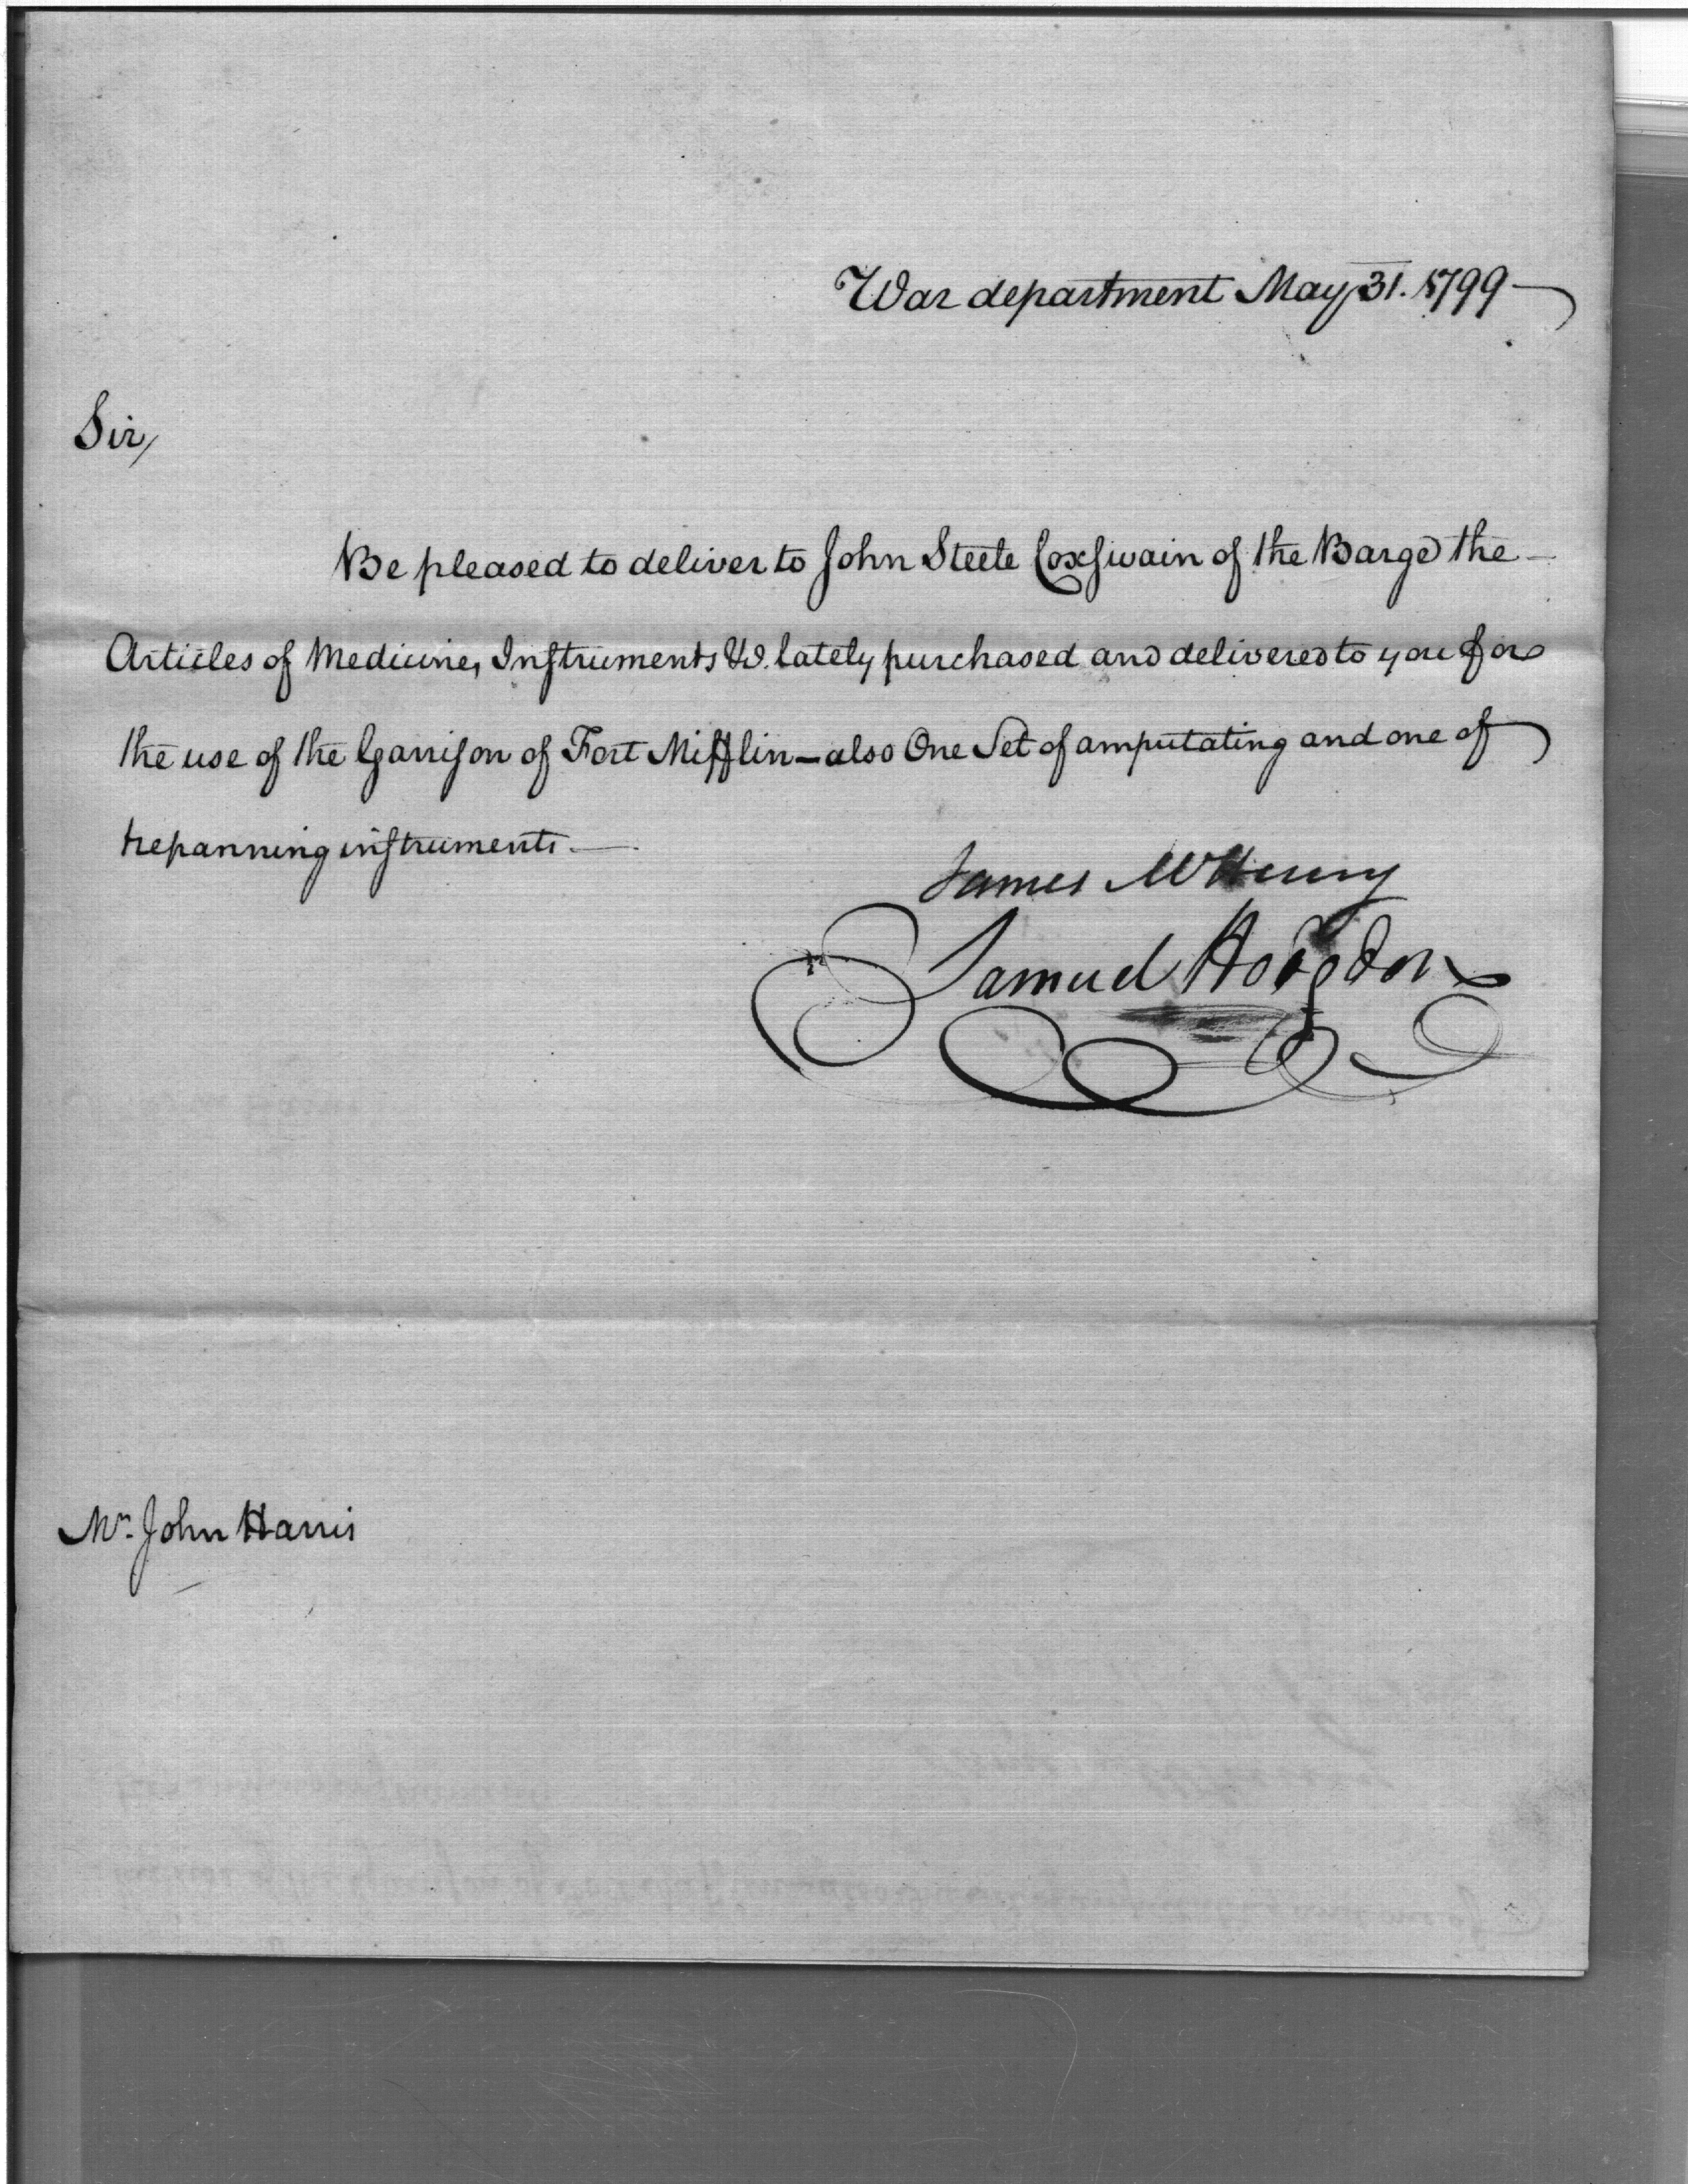 War department May 31. 1799
Sir,
Be pleased to deliver to John Steele Coxswain of the Barge the
Articles of Medicine, Instruments &c. lately purchased and delivered to you for
the use of the Garrison of Fort Mifflin – also One Set of amputating and one of
trepanning instruments.
James McHenry
Samuel Hodgdon
Mr. John Harris